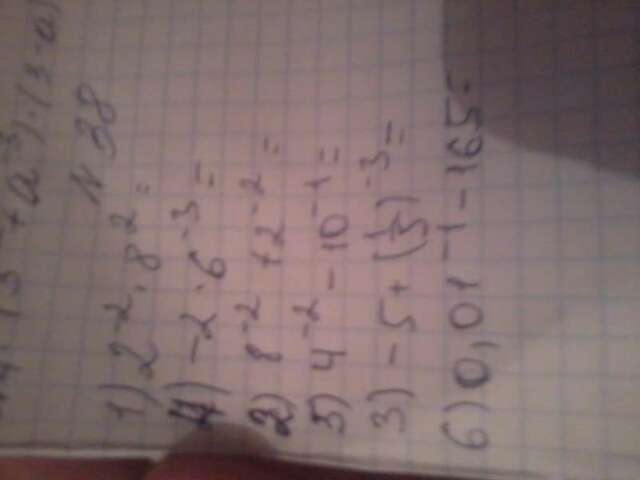 N 38
1) 2⁻²·8²=
4) -2·6⁻³=
2) 8⁻²+2⁻²=
5) 4⁻²-10⁻¹=
3) -5+(1/3)⁻³=
6) 0,01⁻¹-165=